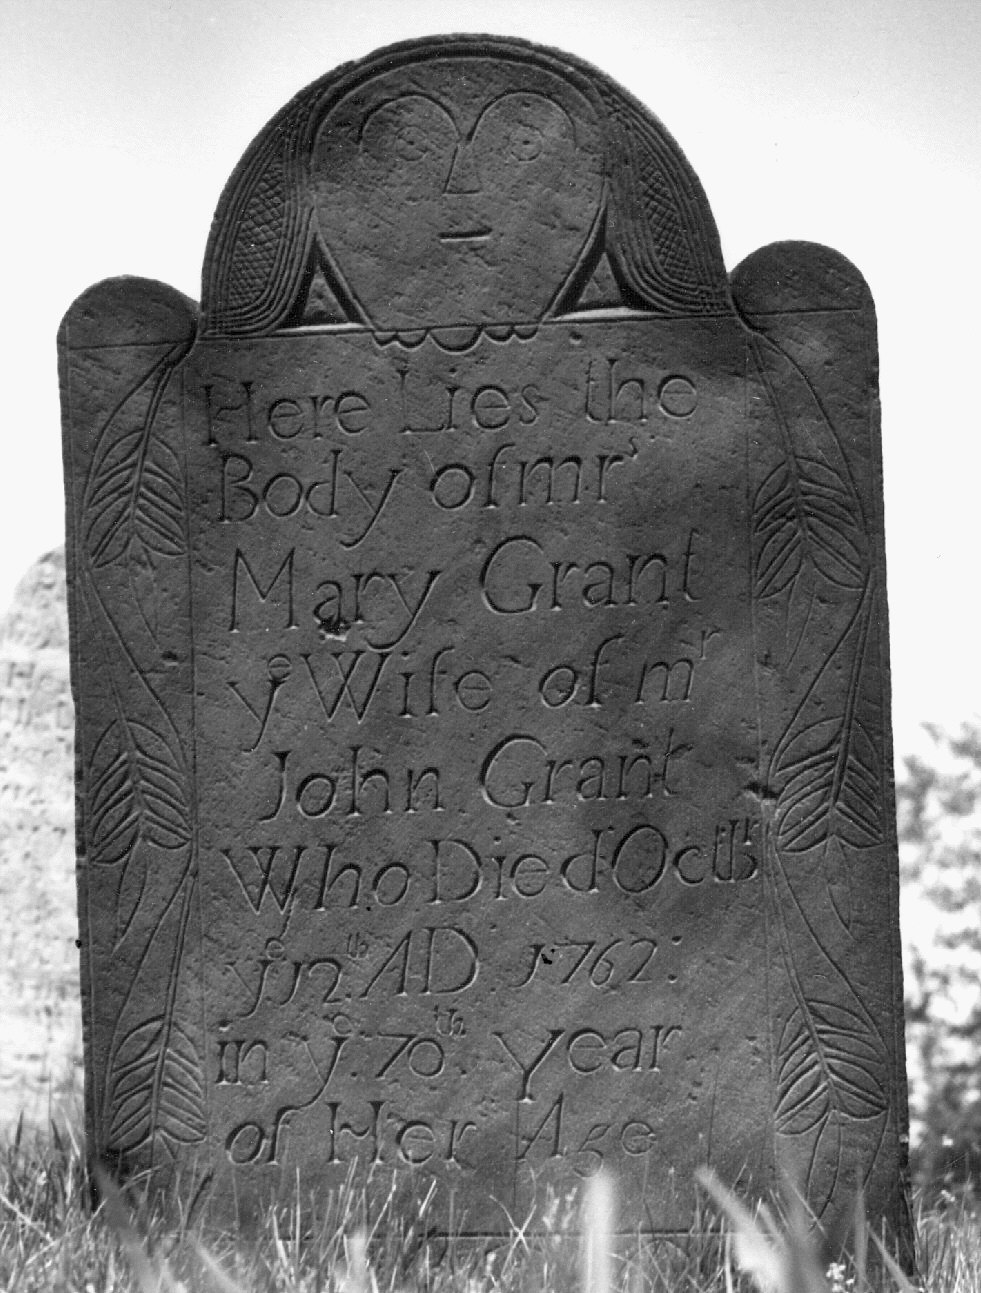 Here Lies the
Body of mrs
Mary Grant
ye Wife of mr
John Grant
Who Died Octbr
ye 12th. AD. 1762:
in ye. 70th. Year
of Her Age